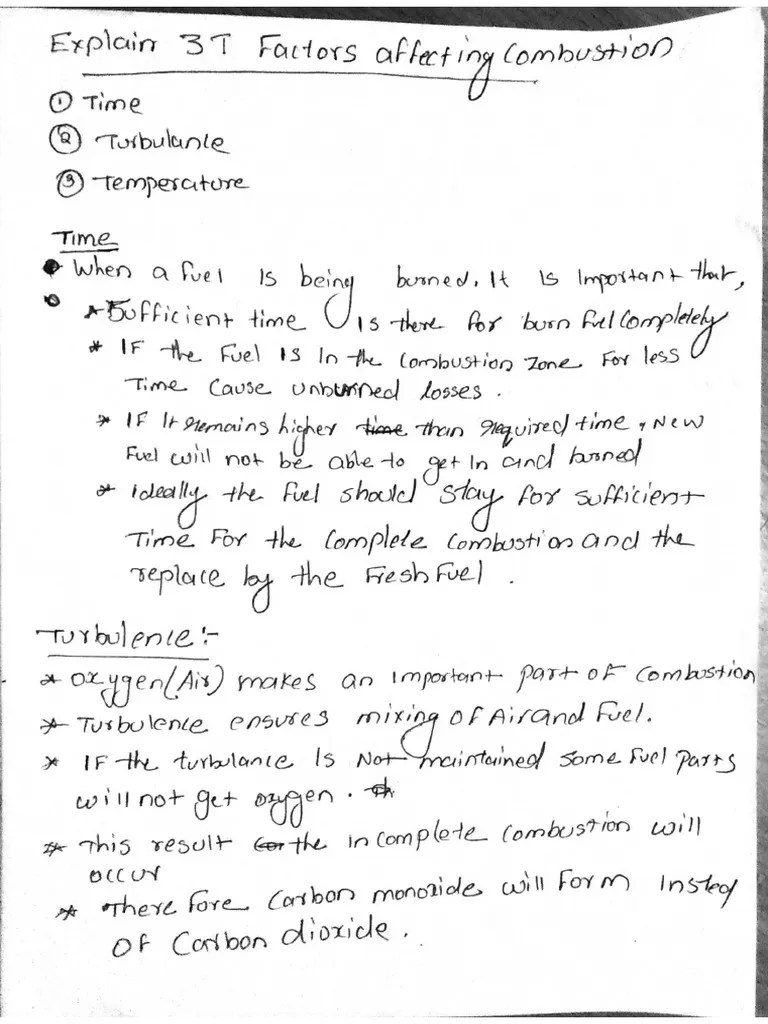 Explain 3T Factors affecting Combustion
① Time
② Turbulance
③ Temperature
Time
When a fuel is being burned, It is important that,
* Sufficient time is there for burn fuel Completely
* IF the Fuel is in the Combustion Zone For less
Time Cause unburned losses.
* IF It remains higher time than required time, New
Fuel will not be able to get In and burned
* ideally the fuel should stay for sufficient
Time For the Complete Combustion and the
replace by the Fresh Fuel.
Turbulence:-
* Oxygen(Air) makes an important part of Combustion
* Turbulence ensures mixing of Air and Fuel.
* IF the turbulance Is Not maintained some fuel parts
will not get oxygen.
* This result the incomplete combustion will
occur
* There fore Carbon monoxide will form insted
OF Carbon dioxide.